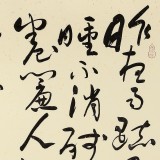 昨夜雨疏
睡不消残
卷簾人